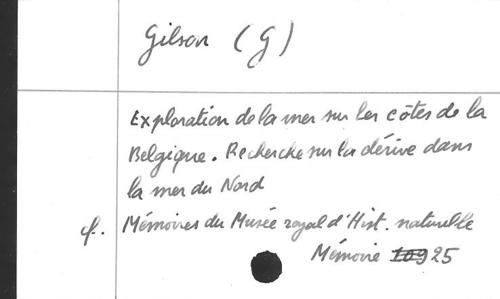 Gilson (G)
Exploration de la mer sur les côtes de la
Belgique. Recherche sur la dérive dans
la mer du Nord
cf. Mémoires du Musée royal d'Hist. naturelle
Mémoire 25